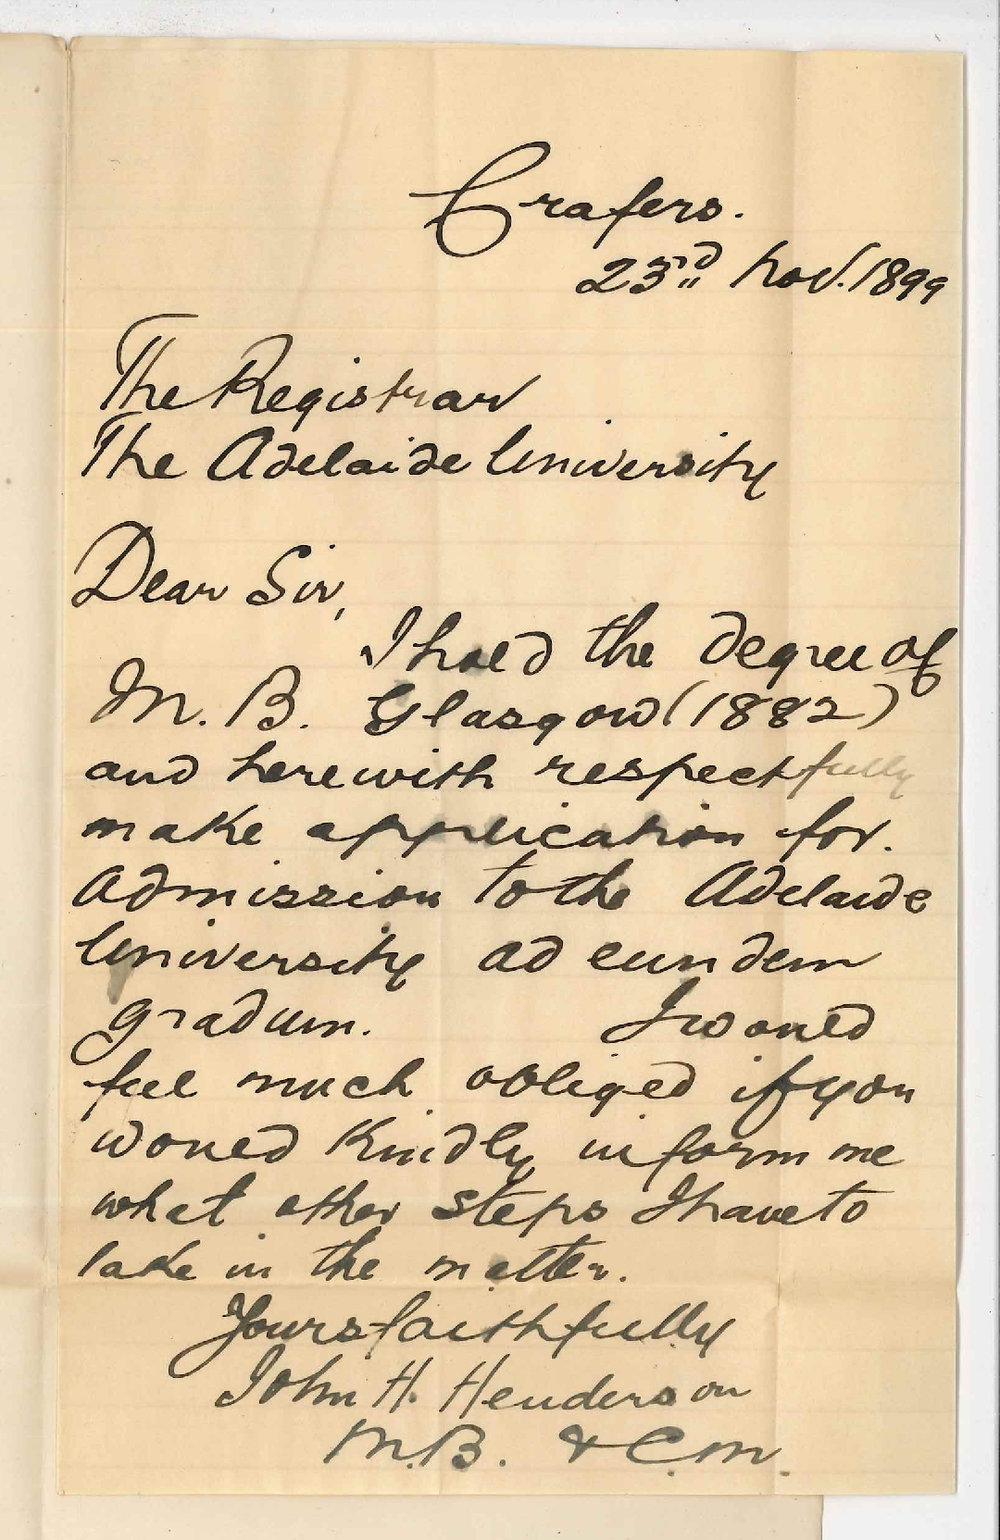 Crafers.
23rd Nov. 1899
The Registrar
The Adelaide University
Dear Sir,
I hold the degree of
M. B. Glasgow (1882)
and herewith respectfully
make application for.
admission to the Adelaide
University ad eundem
gradum. I would
feel much obliged if you
would kindly inform me
what other steps I have to
take in the matter.
Yours faithfully
John H. Henderson
M.B. & C.M.